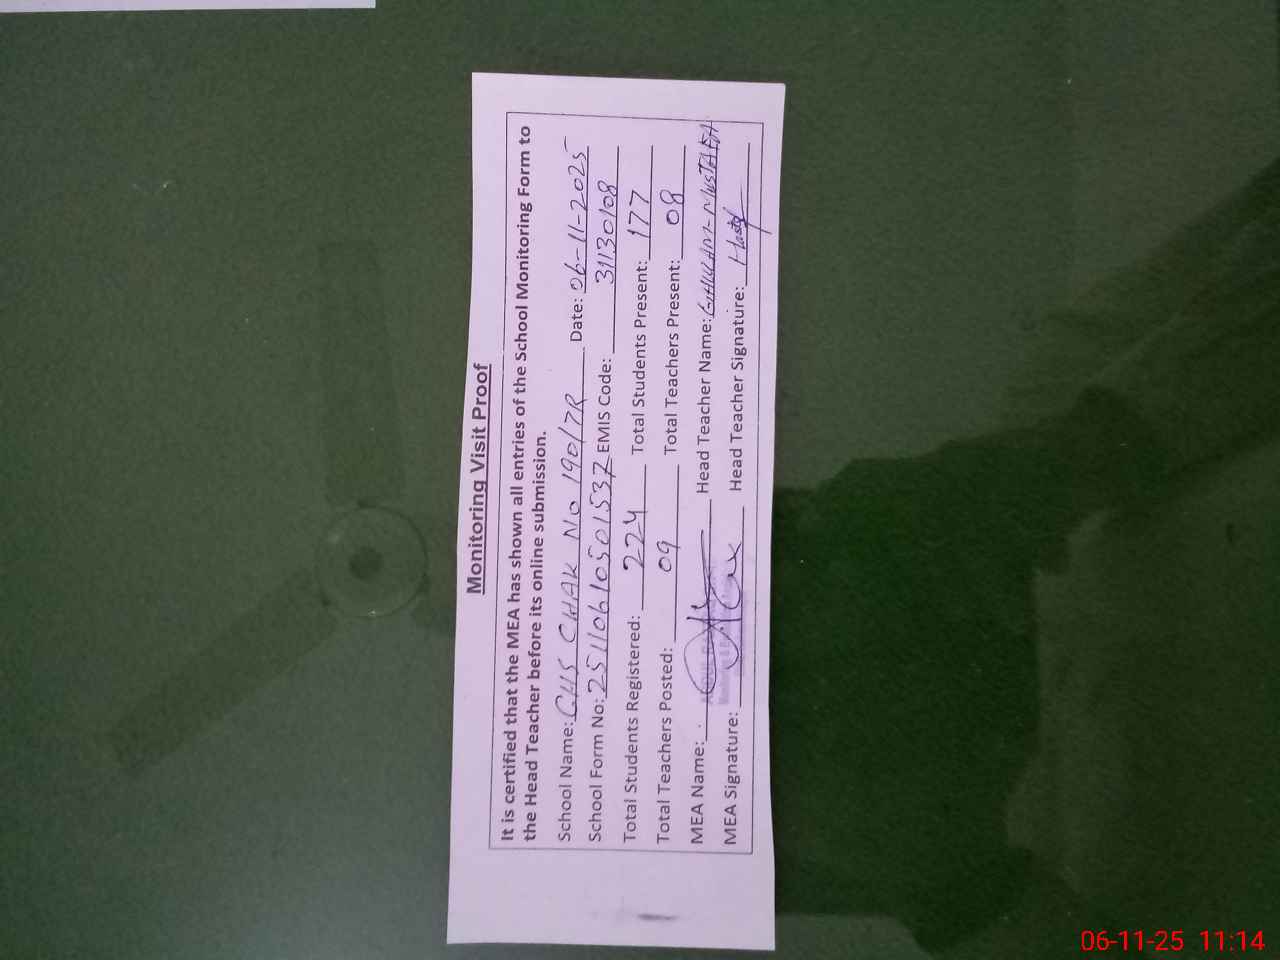 Monitoring Visit Proof
It is certified that the MEA has shown all entries of the School Monitoring Form to
the Head Teacher before its online submission.
School Name: GHS CHAK No 190/7R Date: 06-11-2025
School Form No: 25110610501537 EMIS Code: 31130108
Total Students Registered: 224 Total Students Present: 177
Total Teachers Posted: 09 Total Teachers Present: 08
MEA Name: Head Teacher Name: GHULAM-MUSTAFA
MEA Signature: Head Teacher Signature:
06-11-25 11:14